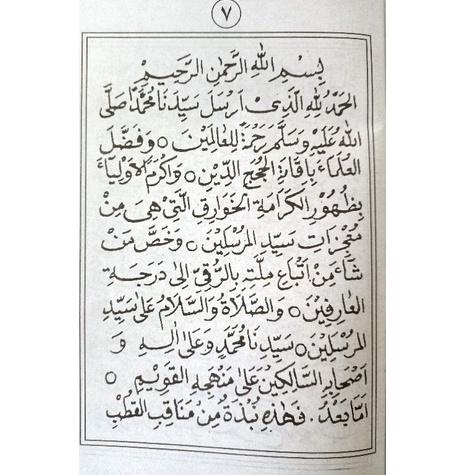 ٧
بِسْمِ اللهِ الرَّحْمٰنِ الرَّحِيْمِ
الحَمْدُ لِلّٰهِ الَّذِىْ اَرْسَلَ سَيِّدَنَا مُحَمَّدًا صَلَّى
اللهُ عَلَيْهِ وَسَلَّمَ رَحْمَةً لِلْعَالَمِيْنَ ○ وَفَضَّلَ
العُلَمَاءَ بِاِقَامَةِ الحُجَجِ الدِّيْنِ ○ وَاَكْرَمَ الْاَوْلِيَاءَ
بِظُهُوْرِ الكَرَامَةِ الخَوَارِقِ الَّتِىْ هِىَ مِنْ
مُعْجِزَاتِ سَيِّدِ المُرْسَلِيْنَ ○ وَخَصَّ مَنْ
شَاءَ مِنْ اَتْبَاعِ مِلَّتِهِ بِالرُّقِيِّ اِلىٰ دَرَجَةِ
العَارِفِيْنَ ○ وَالصَّلَاةُ وَالسَّلَامُ عَلىٰ سَيِّدِ
المُرْسَلِيْنَ ○ سَيِّدِنَا مُحَمَّدٍ وَعَلىٰ اٰلِهِ وَ
اَصْحَابِهِ السَّالِكِيْنَ عَلىٰ مَنْهَجِهِ القَوِيْمِ ○
اَمَّا بَعْدُ. فَهٰذِهِ نُبْذَةٌ مِنْ مَنَاقِبِ القُطْبِ